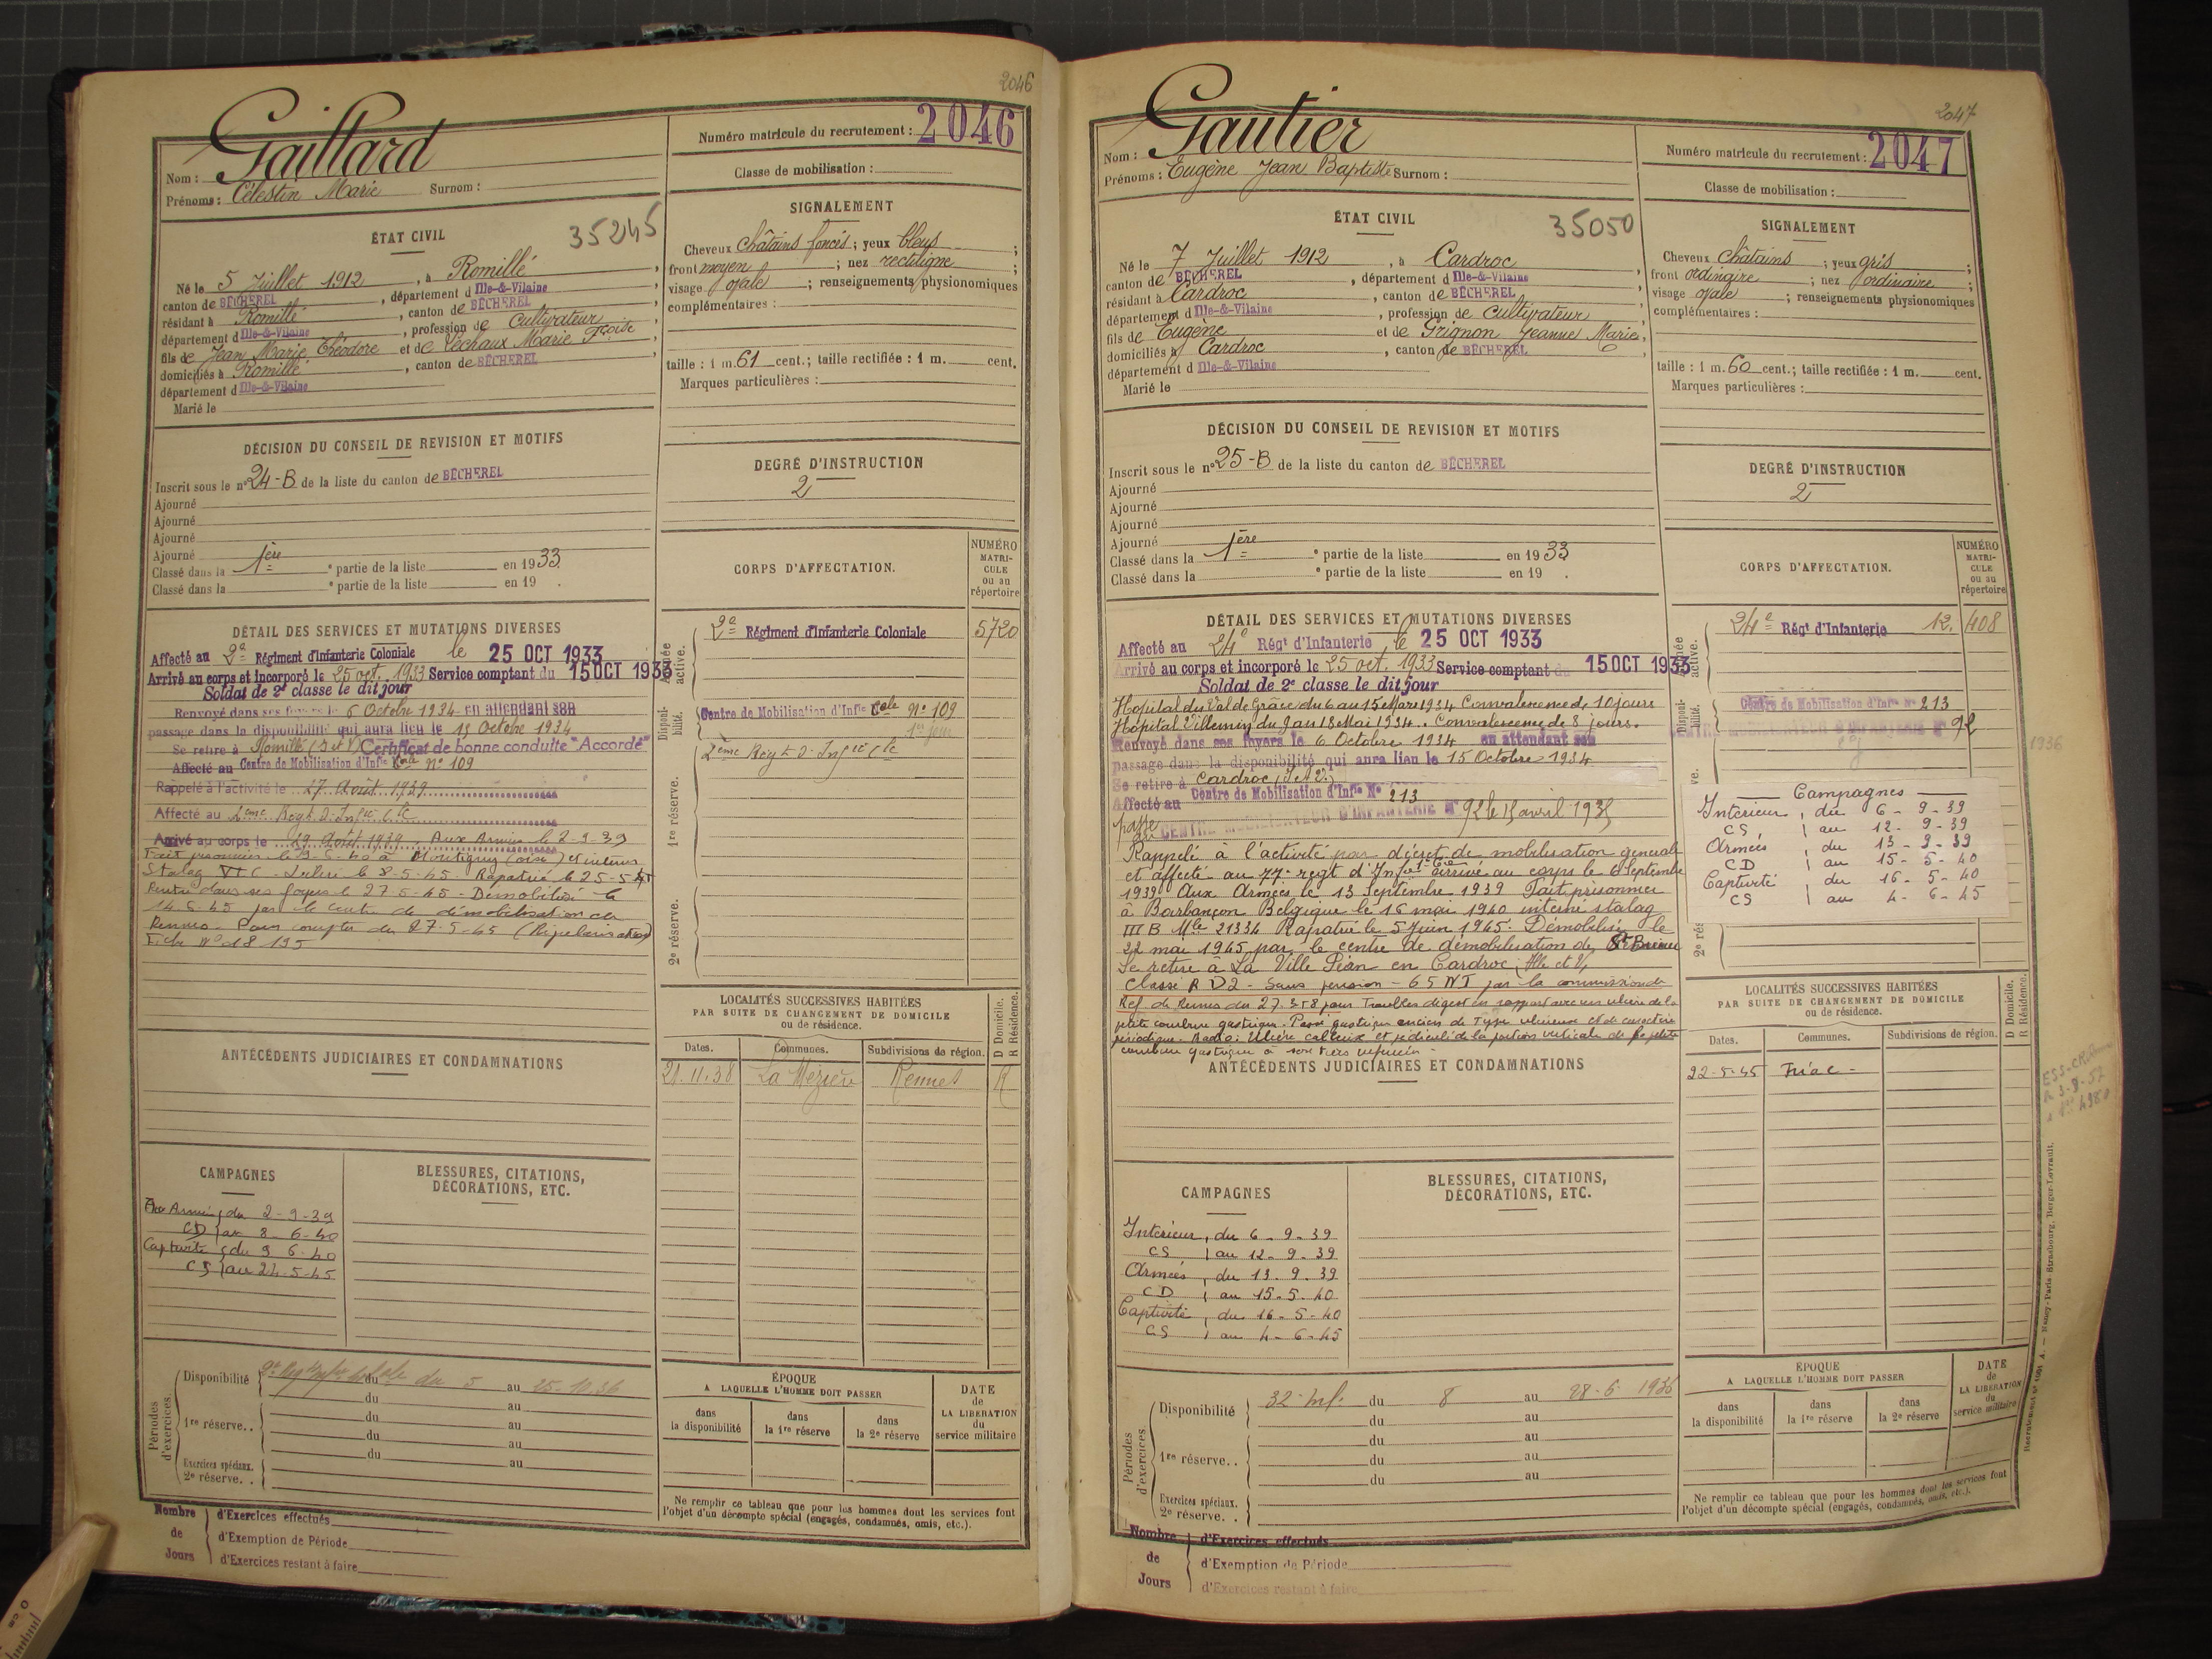 2046
Gaillard
Nom :
Prénoms : Célestin Marie Surnom :
Numéro matricule du recrutement : 2046
Classe de mobilisation :
ÉTAT CIVIL
35245
Né le 5 Juillet 1912, à Romillé,
canton de BÉCHEREL, département d Ille-&-Vilaine
résidant à Romillé, canton de BÉCHEREL
département d Ille-&-Vilaine, profession de Cultivateur,
fils de Jean Marie Théodore et de Léchaux Marie Fçoise
domiciliés à Romillé, canton de BÉCHEREL
département d Ille-&-Vilaine
Marié le
SIGNALEMENT
Cheveux châtains foncés ; yeux bleus ;
front moyen ; nez rectiligne ;
visage ovale ; renseignements physionomiques
complémentaires :
taille : 1 m. 61 cent.; taille rectifiée : 1 m. cent.
Marques particulières :
DÉCISION DU CONSEIL DE REVISION ET MOTIFS
Inscrit sous le n° 24-B de la liste du canton de BÉCHEREL
Ajourné
Ajourné
Ajourné
Ajourné
Classé dans la 1ère e partie de la liste en 1933.
Classé dans la e partie de la liste en 19 .
DEGRÉ D'INSTRUCTION
2
CORPS D'AFFECTATION.
NUMÉRO
MATRI-
CULE
ou au
répertoire
Armée active.
2e Régiment d'Infanterie Coloniale 5720
Disponi-
bilité.
Centre de Mobilisation d'Infie Cole N° 109
1re réserve.
2ème Regt d'Infie Cle
2e réserve.
DÉTAIL DES SERVICES ET MUTATIONS DIVERSES
Affecté au 2e Régiment d'Infanterie Coloniale le 25 OCT 1933
Arrivé au corps et incorporé le 25 oct. 1933 Service comptant du 15 OCT 1933
Soldat de 2e classe le dit jour
Renvoyé dans ses foyers le 6 Octobre 1934 en attendant son
passage dans la disponibilité qui aura lieu le 15 Octobre 1934
Se retire à Romillé (I et V) Certificat de bonne conduite "Accordé"
Affecté au Centre de Mobilisation d'Infie Cole N° 109
Rappelé à l'activité le 27 Août 1939
Affecté au 2eme Regt D'Infie Cle
Arrivé au corps le 29 Août 1939. Aux Armées le 2-9-39
Fait prisonnier le 9-6-40 à Montigny (oise) et interné
Stalag VI C - Libéré le 8-5-45 - Rapatrié le 25-5-45
Rentré dans ses foyers le 27-5-45 - Démobilisé le
14-6-45 par le centre de démobilisation de
Rennes - Pour compter du 27-5-45 (Régularisation)
Fiche N° 18 195
ANTÉCÉDENTS JUDICIAIRES ET CONDAMNATIONS
LOCALITÉS SUCCESSIVES HABITÉES
PAR SUITE DE CHANGEMENT DE DOMICILE
ou de résidence.
D Domicile.
R Résidence.
Dates. Communes. Subdivisions de région.
21.11.38 La Mézière Rennes R
CAMPAGNES
Aux Armées du 2-9-39
CD au 8-6-40
Captivité du 9 6-40
CS au 24-5-45
BLESSURES, CITATIONS,
DÉCORATIONS, ETC.
Périodes
d'exercices.
Disponibilité du 5 au 25-10-36
du au
1re réserve. . du au
du au
du au
Exercices spéciaux.
2e réserve. .
ÉPOQUE
A LAQUELLE L'HOMME DOIT PASSER
dans
la disponibilité
dans
la 1re réserve
dans
la 2e réserve
DATE
de
LA LIBÉRATION
du
service militaire
Ne remplir ce tableau que pour les hommes dont les services font
l'objet d'un décompte spécial (engagés, condamnés, omis, etc.).
Nombre
de
Jours
d'Exercices effectués
d'Exemption de Période
d'Exercices restant à faire
2047
Gautier
Nom :
Prénoms : Eugène Jean Baptiste Surnom :
Numéro matricule du recrutement : 2047
Classe de mobilisation :
ÉTAT CIVIL
35050
Né le 7 Juillet 1912, à Cardroc,
canton de BÉCHEREL, département d Ille-&-Vilaine
résidant à Cardroc, canton de BÉCHEREL
département d Ille-&-Vilaine, profession de Cultivateur,
fils de Eugène et de Grignon Jeanne Marie,
domiciliés à Cardroc, canton de BÉCHEREL
département d Ille-&-Vilaine
Marié le
SIGNALEMENT
Cheveux châtains ; yeux gris ;
front ordinaire ; nez ordinaire ;
visage ovale ; renseignements physionomiques
complémentaires :
taille : 1 m. 60 cent.; taille rectifiée : 1 m. cent.
Marques particulières :
DÉCISION DU CONSEIL DE REVISION ET MOTIFS
Inscrit sous le n° 25-B de la liste du canton de BÉCHEREL
Ajourné
Ajourné
Ajourné
Ajourné
Classé dans la 1ère e partie de la liste en 1933
Classé dans la e partie de la liste en 19 .
DEGRÉ D'INSTRUCTION
2
CORPS D'AFFECTATION.
NUMÉRO
MATRI-
CULE
ou au
répertoire
24e Régt d'Infanterie 12.408
Centre de Mobilisation d'Infie N° 213
CENTRE MOBILISATEUR D'INFANTERIE N° 92
1936
Campagnes
Intérieur du 6-9-39
CS au 12-9-39
Armées du 13-9-39
CD au 15-5-40
Captivité du 16-5-40
CS au 4-6-45
DÉTAIL DES SERVICES ET MUTATIONS DIVERSES
Affecté au 24e Régt d'Infanterie le 25 OCT 1933
Arrivé au corps et incorporé le 25 oct. 1933 Service comptant du 15 OCT 1933
Soldat de 2e classe le dit jour
Hôpital du Val de Grâce du 6 au 15 Mars 1934 Convalescence de 10 jours
Hôpital Villemin du 9 au 18 Mai 1934. Convalescence de 8 jours.
Renvoyé dans ses foyers le 6 Octobre 1934 en attendant son
passage dans la disponibilité qui aura lieu le 15 Octobre 1934
Se retire à Cardroc (I et V.)
Affecté au Centre de Mobilisation d'Infie N° 213
passé au CENTRE MOBILISATEUR D'INFANTERIE N° 92 le 15 avril 1935
Rappelé à l'activité par décret de mobilisation générale
et affecté au 77e regt d'Infie arrivé au corps le 6 Septembre
1939 Aux Armées le 13 Septembre 1939 Fait prisonnier
à Barbançon Belgique le 16 mai 1940 interné stalag
III B Mle 21334 Rapatrié le 5 juin 1945. Démobilisé le
22 mai 1945 par le centre de démobilisation de St Brieuc
Se retire à La Ville Péan en Cardroc Ille et V,
Classé R D2 - Sans pension - 65 NI par la commission de
Ref. de Rennes du 27.3.58 pour Troubles digest en rapport avec un ulcère de la
petite courbure gastrique. Passé gastrique ancien de Type ulcéreux et de caractère
périodique. Radio: Ulcère calleux et pédiculé de la portion verticale de la petite
courbure gastrique à son tiers inférieur -
ANTÉCÉDENTS JUDICIAIRES ET CONDAMNATIONS
LOCALITÉS SUCCESSIVES HABITÉES
PAR SUITE DE CHANGEMENT DE DOMICILE
ou de résidence.
D Domicile.
R Résidence.
Dates. Communes. Subdivisions de région.
22-5-45 Tréac -
CAMPAGNES
Intérieur du 6-9-39
CS au 12-9-39
Armées du 13.9.39
CD au 15-5-40
Captivité du 16-5-40
CS au 4-6-45
BLESSURES, CITATIONS,
DÉCORATIONS, ETC.
Périodes
d'exercices.
Disponibilité 32e Inf. du 8 au 28-6 1936
du au
du au
1re réserve. . du au
du au
Exercices spéciaux.
2e réserve. .
ÉPOQUE
A LAQUELLE L'HOMME DOIT PASSER
dans
la disponibilité
dans
la 1re réserve
dans
la 2e réserve
DATE
de
LA LIBÉRATION
du
service militaire
Ne remplir ce tableau que pour les hommes dont les services font
l'objet d'un décompte spécial (engagés, condamnés, omis, etc.).
Nombre
de
Jours
d'Exercices effectués
d'Exemption de Période
d'Exercices restant à faire
Nancy-Paris-Strasbourg, Berger-Levrault.